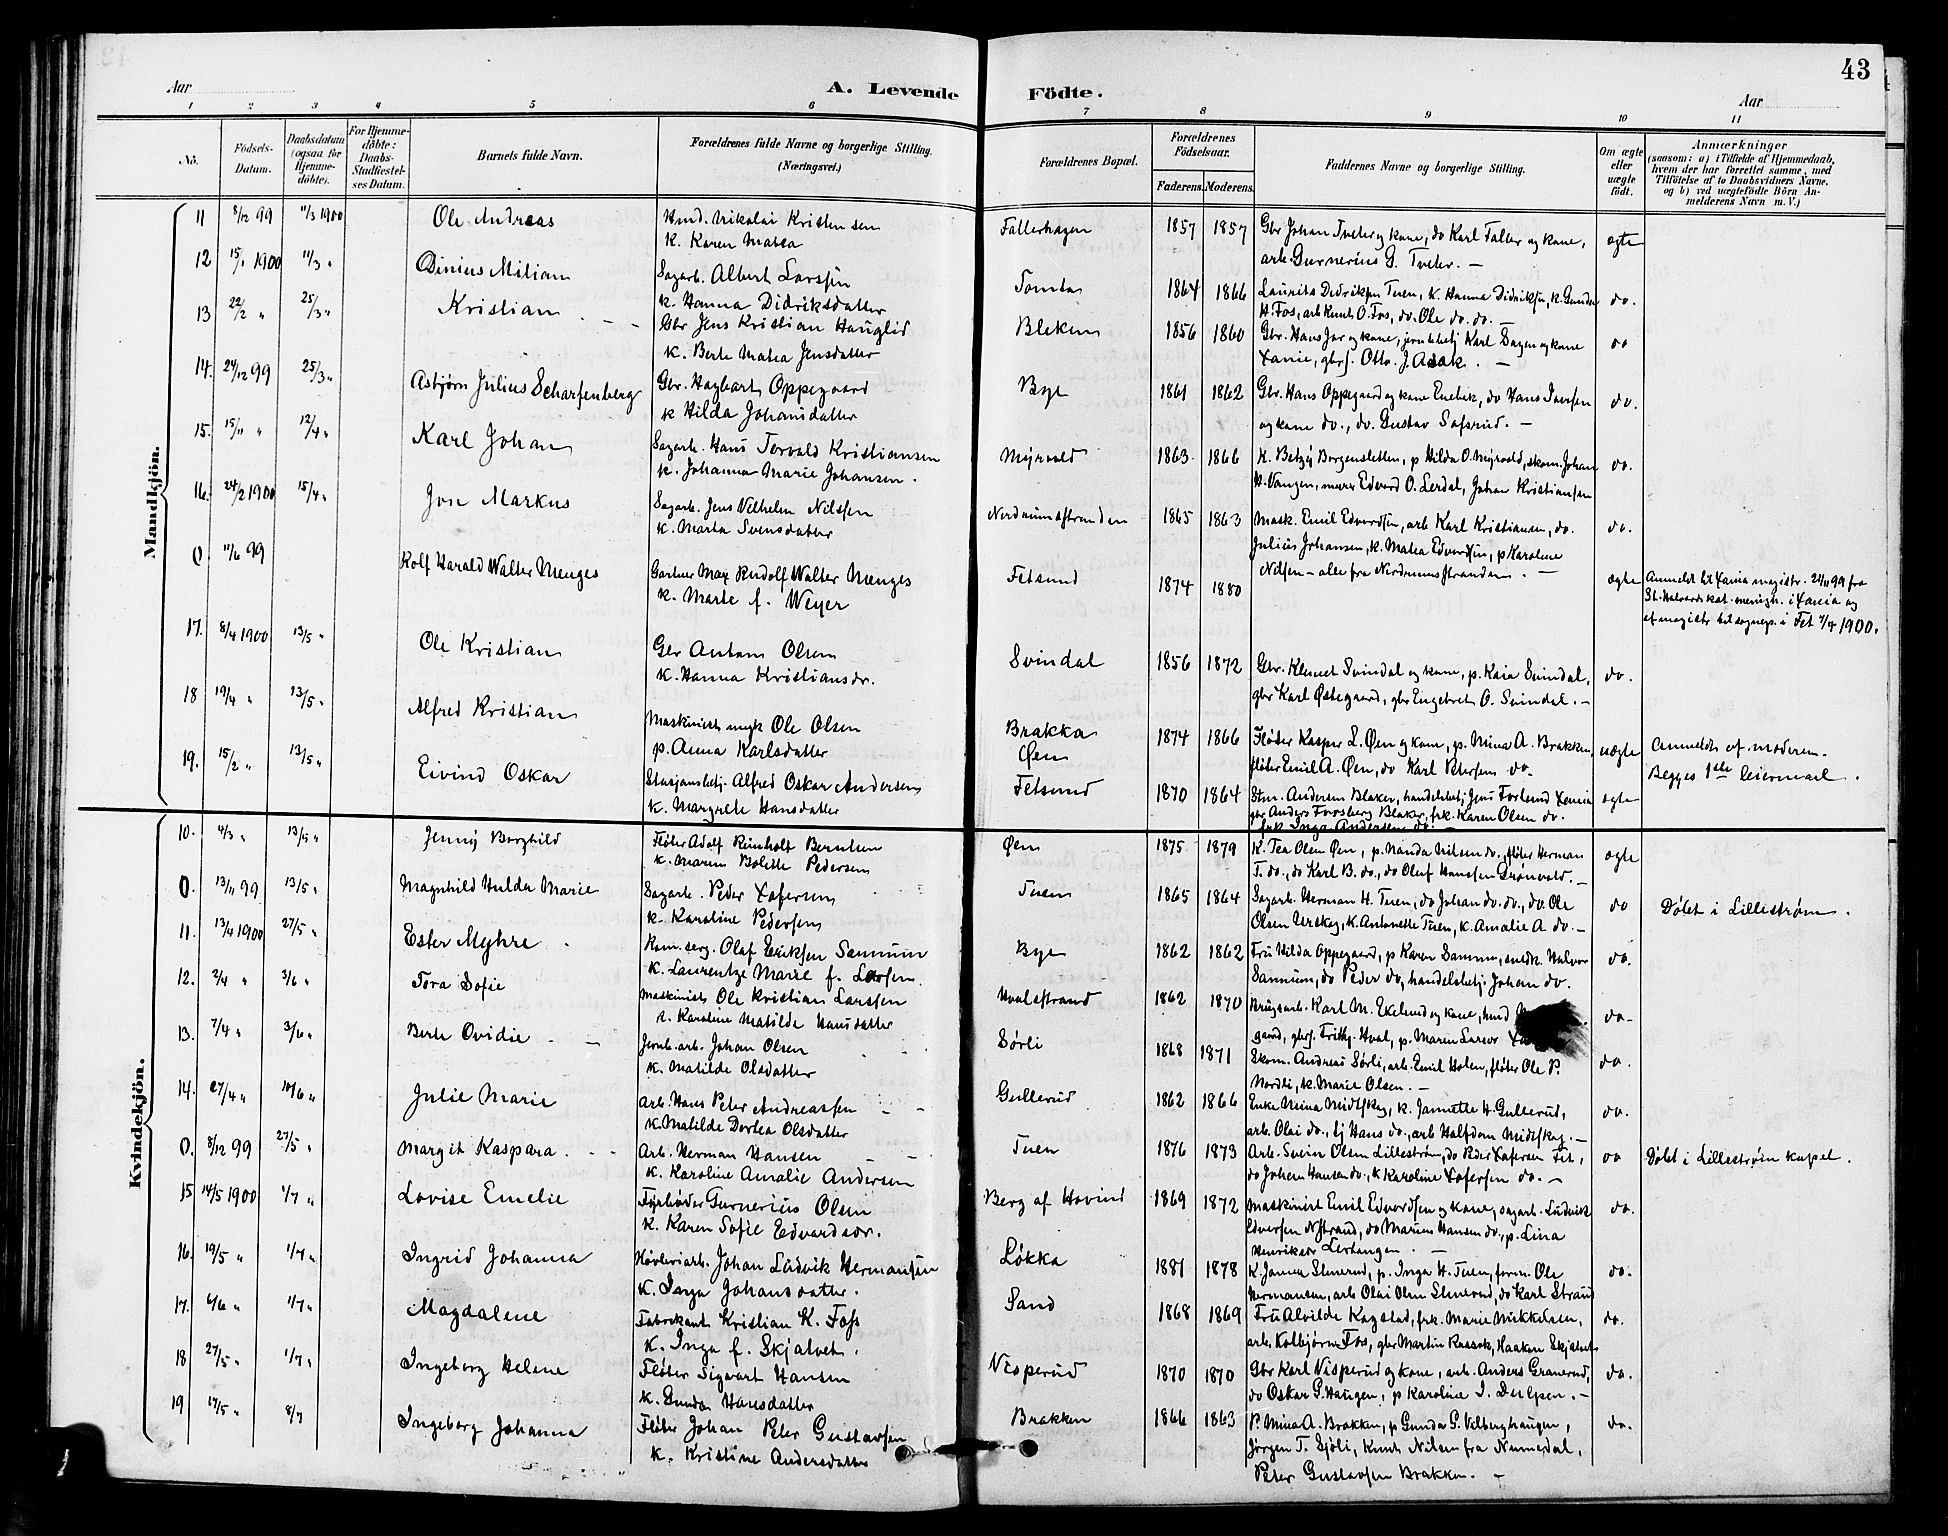 43
Aar
A. Levende Födte.
Aar
1 2 3 4 5 6 7 8 9 10 11
No.
Födsels-Datum.
Daabsdatum (ogsaa for Hjemme-döbte).
For Hjemme-döbte: Daabs-Stadfæstel-ses Datum.
Barnets fulde Navn.
Forældrenes fulde Navne og borgerlige Stilling. (Næringsvei.)
Forældrenes Bopæl.
Forældrenes Födselsaar.
Faderens. Moderens.
Faddernes Navne og borgerlige Stilling.
Om ægte eller uægte födt.
Anmærkninger
(saasom: a) i Tilfælde af Hjemmedaab, hvem der har forrettet samme, med Tilföielse af to Daabsvidners Navne, og b) ved uægtefödte Börn An-melderens Navn m. V.)
Mandkjön.
11 8/12 99 11/3 1900 Ole Andreas Hmd. Nikolai Kristensen Fallerhagen 1857 1857 Gbr Johan Tveter og kone, do Karl Faller og kone, ægte
k. Karen Matea arb. Gurnerius G. Tveter. —
12 15/1 1900 11/3 " Dinius Miliam Sagarb. Albert Larssen Tomta 1864 1866 Laurits Didriksen Tuen, k. Hanna Didriksen, k. Gunda do.
k. Hanna Didriksdatter H. Fos, arb Knut O. Fos, do. Ole do. do. —
13 22/2 " 25/3 " Kristian Gbr Jens Kristian Hauglid Bleken 1856 1860 Gbr. Hans Jar og kone, Karl Dagen og kone do
k. Berte Matea Jensdatter Xania, gbrs. Otto J. Aasak. —
14. 24/12 99 25/3 " Asbjørn Julius Scharfenberg Gbr. Hagbart Oppegaard Bye 1861 1862 Gbr. Hans Oppegaard og kone Enebak, do Hans Iversen do.
k Hilda Johansdatter og kone do., do. Gustav Sofsrud. —
15. 15/11 " 12/4 " Karl Johan Sagarb. Hans Torvald Kristiansen Myrvold 1863 1866 k. Betzy Borgensletten, p Hilda O. Myrvold, skom. Johan do.
k. Johanna Marie Johansen. H. Vangen, murer Edvard O. Lerdal, Johan Kristiansen
16. 24/2 1900 15/4 " Jon Markus Sagarb. Jens Vilhelm Nilssen Nordrumsstranden 1865 1863 Mask. Emil Edvardsen, arb Karl Kristiansen, do. do.
k. Marta Svensdatter Julius Johansen, k. Matea Edvardsen, p Karoline
Nilsen – alle fra Nordrumsstranden. —
0 11/6 99 Rolf Harald Walter Menges Gartner Max Rudolf Walter Menges Fetsund 1874 1880 ægte Anmeldt til Xania magistr. 21/11 99 fra
k. Marte f. Weyer St. Halvards kat. menigh. i Xania og
af magistr til sognep. i Fet 7/4 1900.
17. 8/4 1900 13/5 " Ole Kristian Gbr Antom Olsen Svindal 1856 1872 Gbr. Klemet Svindal og kone, p. Kaia Svindal, do.
k. Hanna Kristiansdr. gbr Karl Østegaard, gbr Engebret O. Svindal. —
18 19/4 " 13/5 " Alfred Kristian Maskinist ungk Ole Olsen Brakka 1874 1866 Fløter Kasper L. Øen og kone, p. Mina A. Brakken, uægte Anmeldt af moderen.
p. Anna Karlsdatter Øen fløter Emil A. Øen, do Karl Petersen do. Begges 1ste leiermaal.
19. 15/2 " 13/5 " Eivind Oskar Stasjonsbetj. Alfred Oskar Andersen Fetsund 1870 1864 Stm. Andersen Blaker, handelsbetj Jens Forlund Xania ægte
k. Margrete Hansdatter gbr Anders Forsberg Blaker, frk. Karen Olsen do.
frk Inga Andersen do. —
Kvindekjön.
10. 4/3 " 13/5 " Jenny Borghild Fløter Adolf Reinholt Berntsen Øen 1875 1879 K. Tea Olsen Øen, p. Nanda Nilsen do., fløter Herman ægte
k. Maren Bolette Pedersen T. do., do Karl B. do., do Oluf Hanssen Grønvold. —
0. 13/11 99 13/5 " Magnhild Hulda Marie Sagarb. Peder Xofersen Tuen 1865 1864 Sagarb. Herman H. Tuen, do Johan do. do., do. Ole do Døbt i Lillestrøm.
k. Karoline Pedersen Olsen Urskog, k. Antonette Tuen, k. Amalie A do. —
11. 13/4 1900 27/5 " Ester Myhre Kom. serg. Olaf Eriksen Sannum Bye 1862 1862 Fru Hilda Oppegaard, p Karen Sannum, smedk. Halvor do.
k. Laurentze Marie f. Larsen. Sannum, do Peder do, handelsbetj. Johan do.
12. 2/4 " 3/6 " Tora Sofie Maskinist Ole Kristian Larssen Hvalsstrand 1862 1870 Brugsarb. Karl M. Ekelund og kone, hmd do.
k. Karoline Matilde Hansdatter gaard, gbrs. Frithj. Hval, p. Maren Larsdr
13. 7/4 " 3/6 " Berte Ovidie Jernb. arb. Johan Olsen Sørli 1868 1871 Skom. Andreas Sørli, arb. Emil Holen, fløter Ole P. do.
k. Matilde Olsdatter Nordli, k. Marie Olsen. —
14. 27/4 " 10/6 " Julie Marie Arb. Hans Peter Andreassen Gullerud 1862 1866 Enke Mina Midtskog, k. Jannette H. Gullerud, do.
k. Matilde Dortea Olsdatter arb. Olai do., tj Hans do., arb Halfdan Midtskog. —
0. 8/12 99 27/5 " Margit Kaspara Arb. Herman Hansen Tuen 1876 1873 Arb. Svein Olsen Lillestrøm, do Peder Xofersen Fet, do Døbt i Lillestrøm kapel.
k. Karoline Amalie Andersen do Johan Hansen do., k Karoline Xofersen do. —
15 14/5 1900 1/7 " Lovise Emelie Fyrbøder Gurnerius Olsen Berg af Hovind 1869 1872 Maskinist Emil Edvardsen og kone, sagarb. Ludvik do.
k. Karen Sofie Edvardsdr. Edversen Nstrand, do Marius Hansen do., p. Lina
Henriksdr Lerhangen. —
16. 19/5 " 1/7 " Ingrid Johanna Høvleriarb. Johan Ludvik Hermansen Løkka 1881 1878 K. Janna Elnerud, p. Inga H. Tuen, form. Ole do.
k. Inga Johansdatter. Hermansen, arb Olai Olsen Elnerud, do Karl Strand
17. 6/6 " 1/7 " Magdalene Fabrikant Kristian K. Foss Sand 1868 1869 Fru Alvilde Kogstad, frk. Marie Mikkelsen, do.
k. Inga f. Skjatvet. arb. Kolbjørn Fos, gbr Martin Raasok, Haaken Skjatvet
18 27/5 " 1/7 " Ingeborg Helene Fløter Sigvart Hansen Nesperud 1870 1870 Gbr Karl Nesperud og kone, arb. Anders Granerud, do.
k. Gunda Hansdatter do Oskar G. Haugen, p Karoline J. —
19 17/5 " 8/7 Ingeborg Johanna Fløter Johan Peter Gustavsen Brakken 1866 1863 P. Mina A. Brakken, p Gunda P. Vilberghaugen, do.
k. Kristine Andersdatter Jørgen T. Sjøli, Knut Nilsen fra Numedal,
Peter Gustavsen Brakken. —